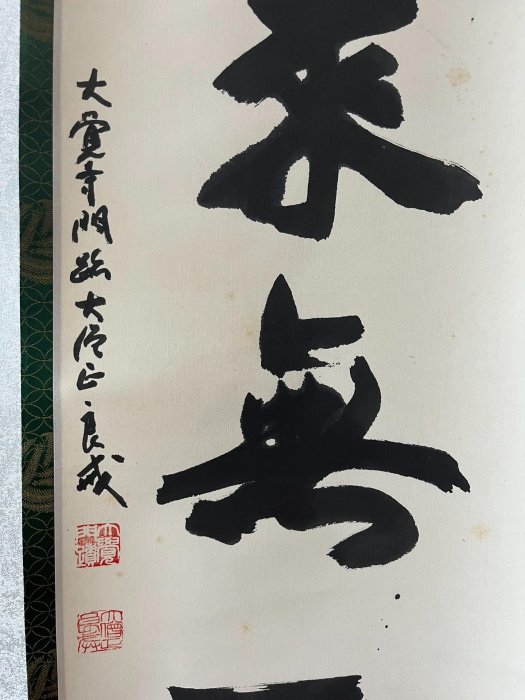 来無
大覺寺門跡大僧正良戒